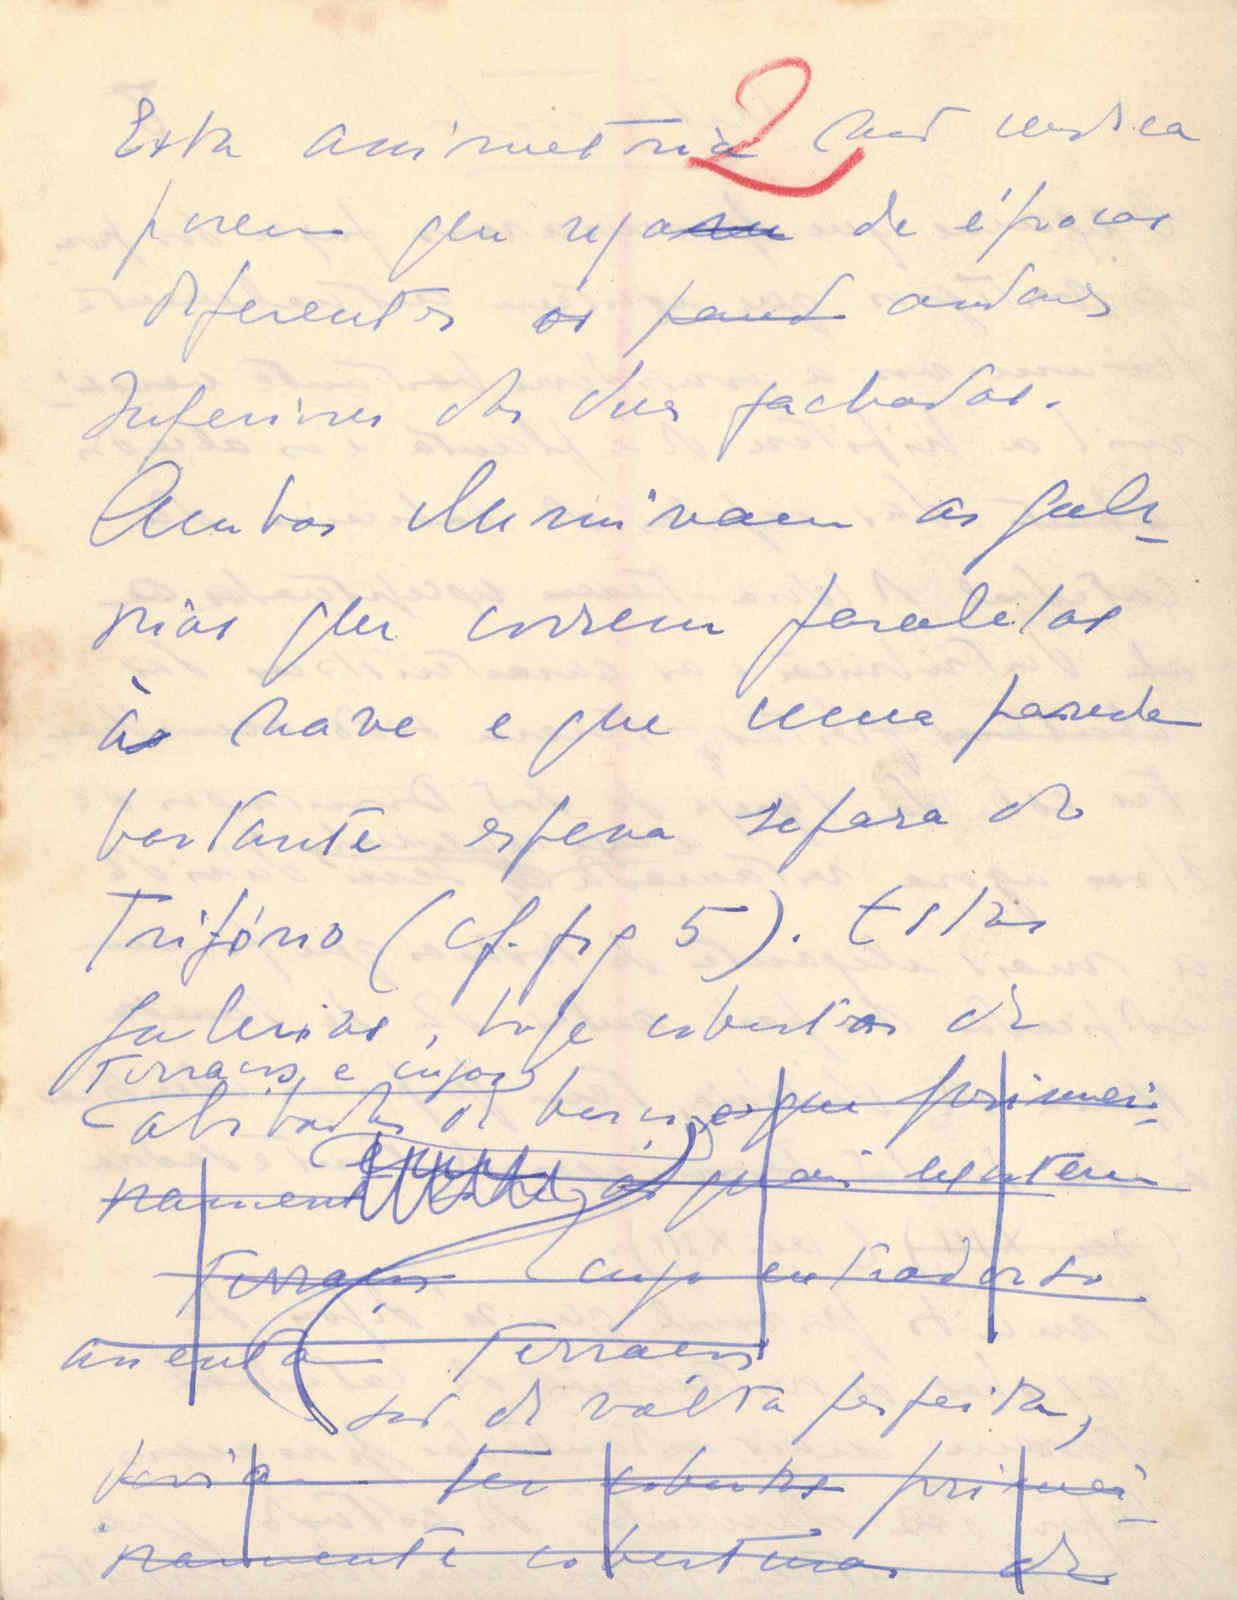 2
Esta assimetria não indica
porem que seja de épocas
diferentes os andares
inferiores das duas fachadas.
Ambos iluminavam as gale-
rias que correm paralelas
às nave e que uma parede
bastante espessa separa do
Trifório (cf. fig 5). Estas
galerias, hoje cobertas de
Terraços, e cujas
abóbadas de berço, que primei-
ramente as quais
Terraços cujo extradorso
assenta Terraços
são de volta perfeita,
devia ter cobertas primei-
ramente coberturas de